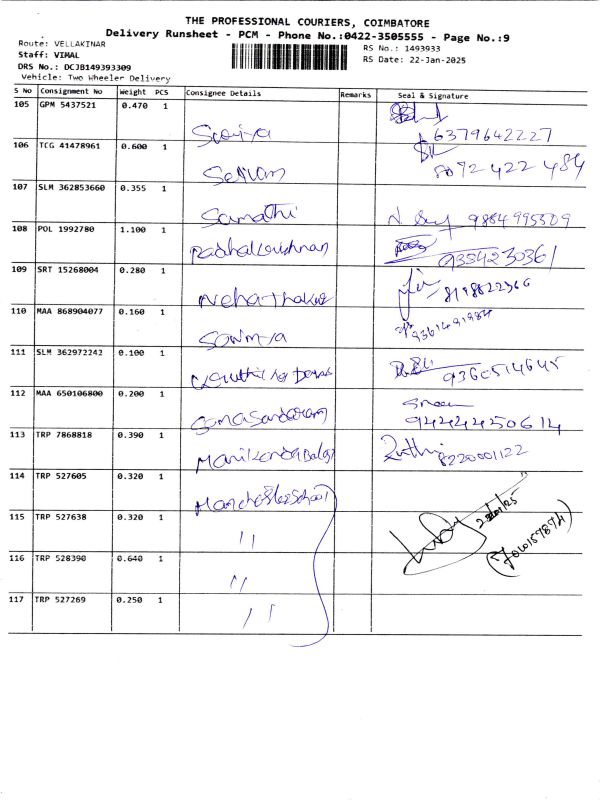 THE PROFESSIONAL COURIERS, COIMBATORE
Delivery Runsheet - PCM - Phone No.:0422-3505555 - Page No.:9
Route: VELLAKINAR
RS No.: 1493933
Staff: VIMAL
RS Date: 22-Jan-2025
DRS No.: DCJB149393309
Vehicle: Two Wheeler Delivery
S No Consignment No Weight PCS Consignee Details Remarks Seal & Signature
105 GPM 5437521 0.470 1
6379642227
106 TCG 41478961 0.600 1
Selvam 8072 422 484
107 SLM 362853660 0.355 1
Sumathi 9884995309
108 POL 1992780 1.100 1
Radhakrishnan 9354230361
109 SRT 15268004 0.280 1
Neha Thakur 8198822366
110 MAA 868904077 0.160 1
Sowmya 9361491984
111 SLM 362972242 0.100 1
9360514645
112 MAA 650106800 0.200 1
Somasundaram 94444450614
113 TRP 7868818 0.390 1
Manikanda Balaji 8220001122
114 TRP 527605 0.320 1
Manchester School
115 TRP 527638 0.320 1
"
116 TRP 528390 0.640 1
"
117 TRP 527269 0.250 1
"